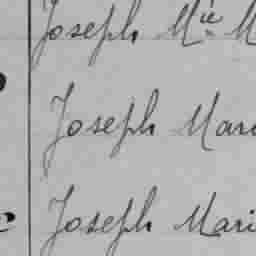 Joseph Mie M
Joseph Mari
Joseph Mari